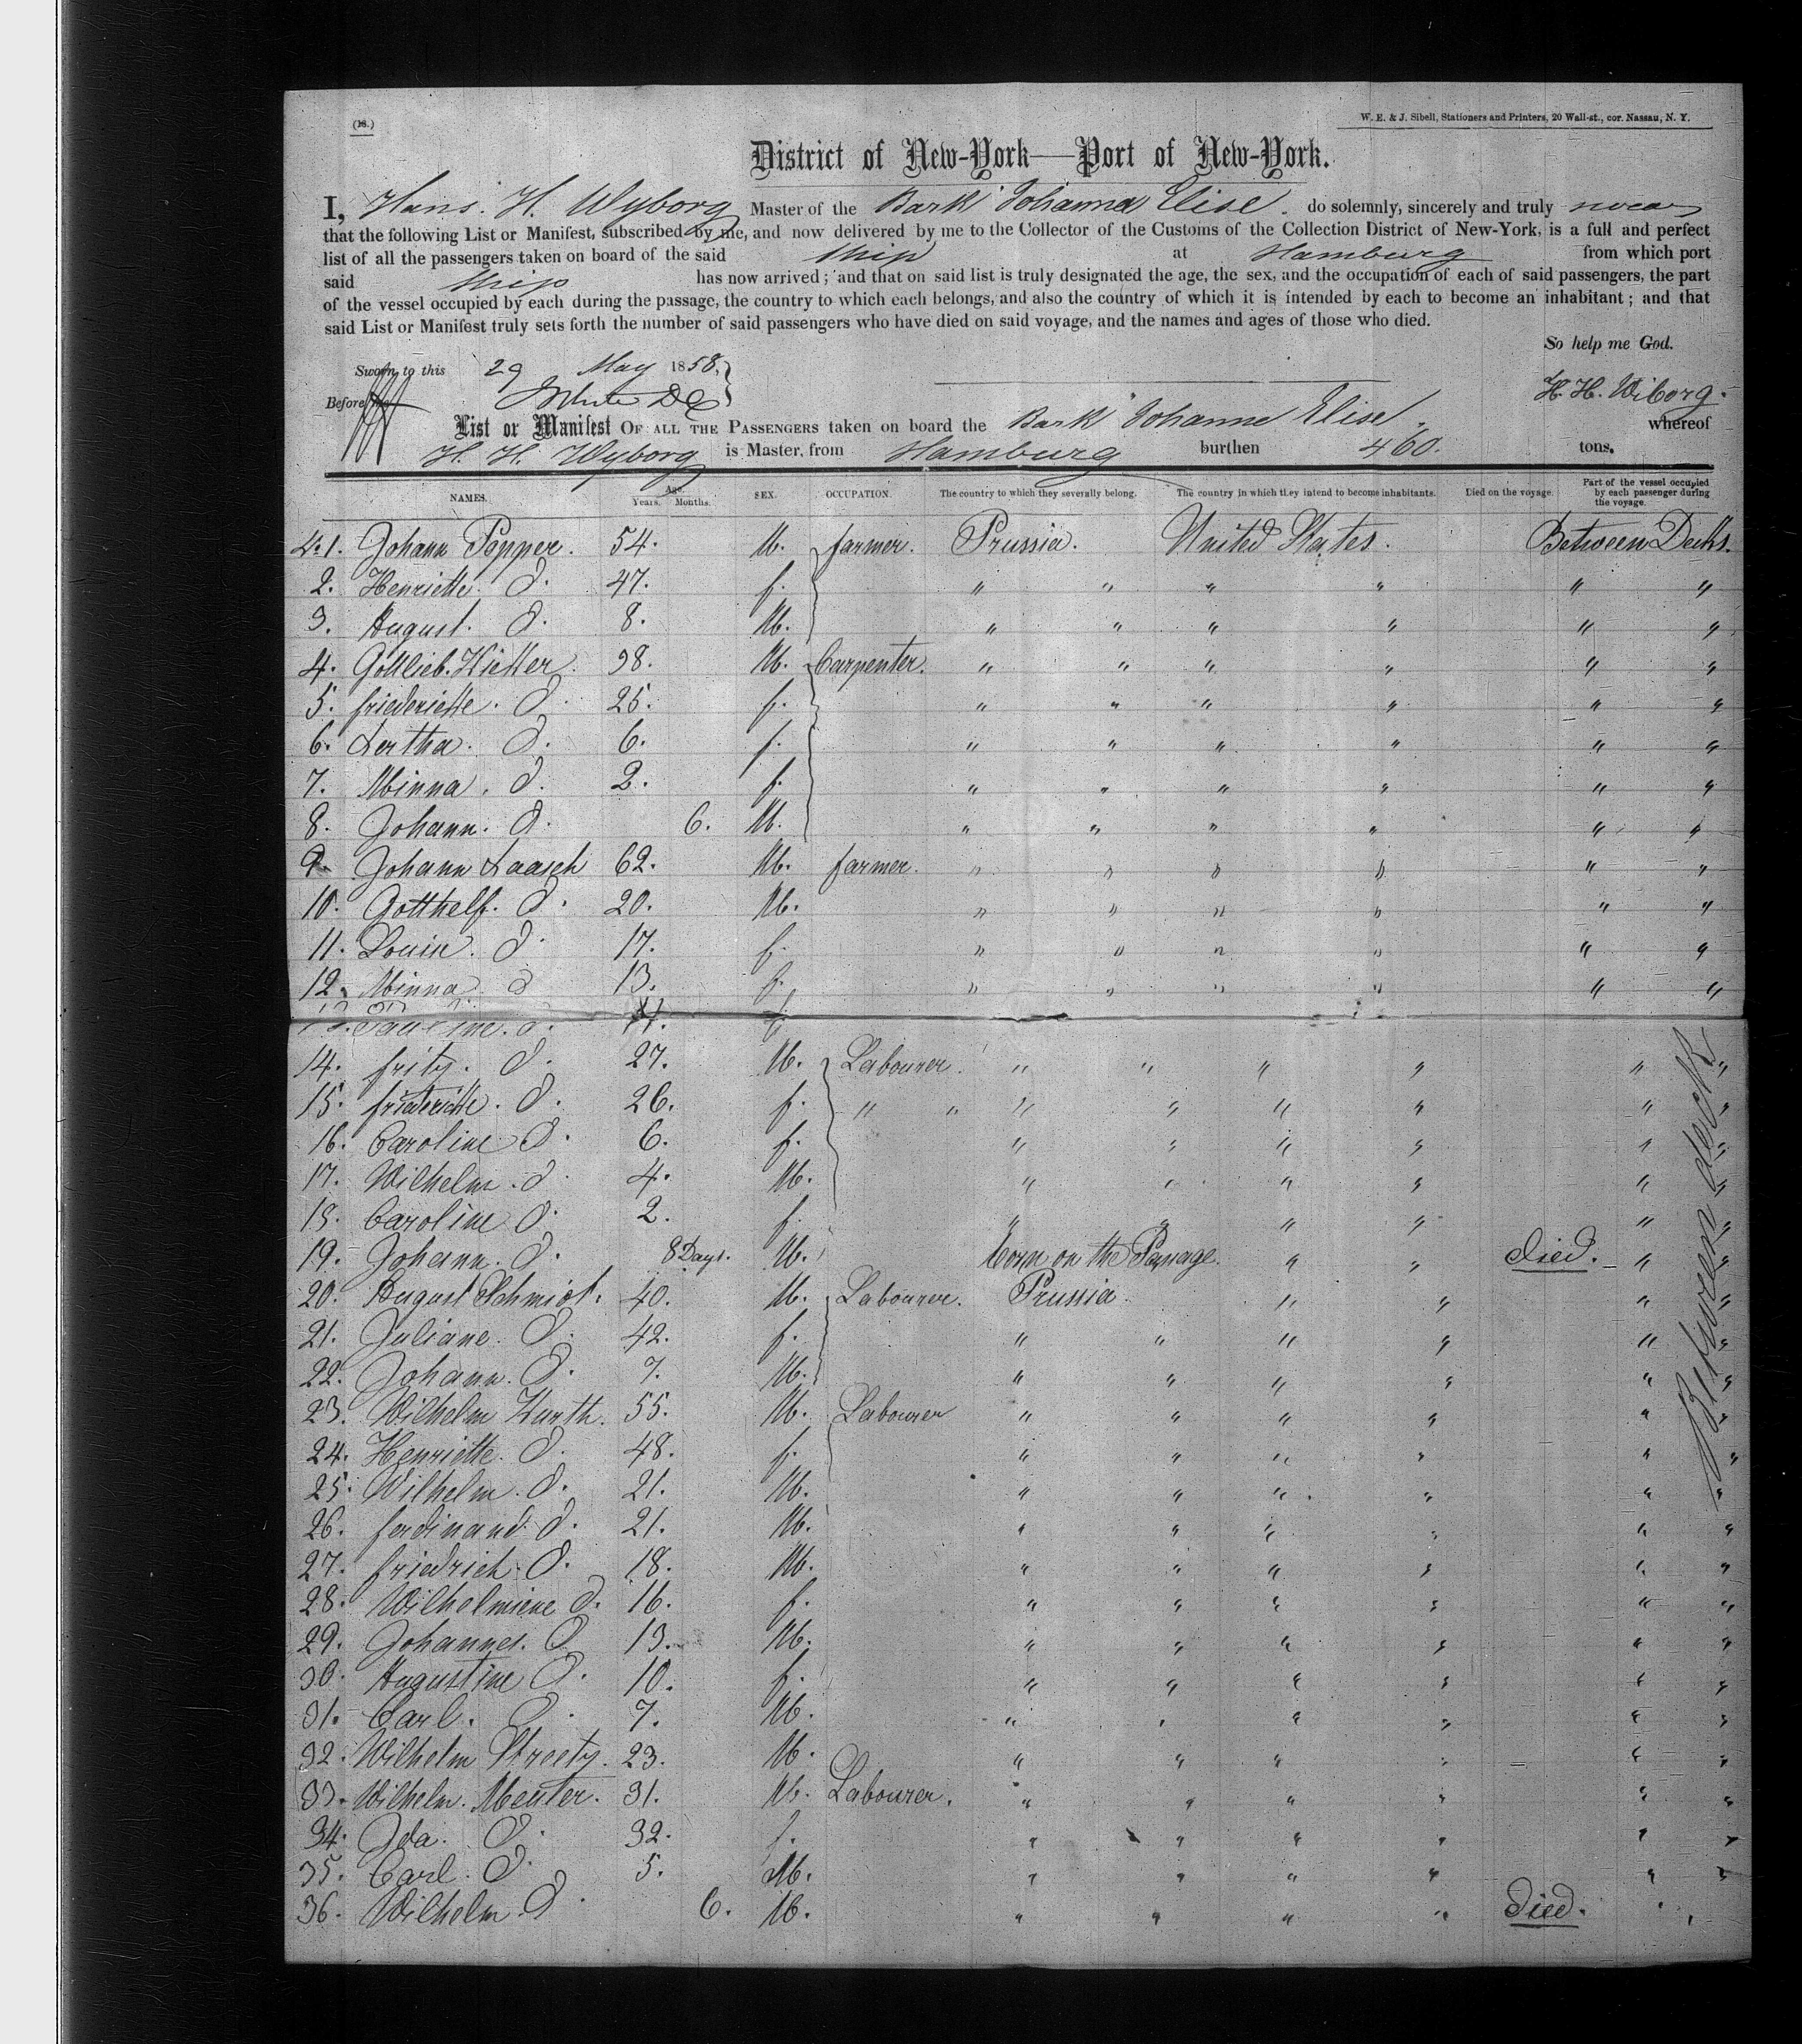 (18.)
W. E. & J. Sibell, Stationers and Printers, 20 Wall-st., cor. Nassau, N. Y.
District of New-York—Port of New-York.
I, Hans. H. Wyborg Master of the Bark Johanna Elise. do solemnly, sincerely and truly swear
that the following List or Manifest, subscribed by me, and now delivered by me to the Collector of the Customs of the Collection District of New-York, is a full and perfect
list of all the passengers taken on board of the said ship at Hamburg from which port
said ship has now arrived; and that on said list is truly designated the age, the sex, and the occupation of each of said passengers, the part
of the vessel occupied by each during the passage, the country to which each belongs, and also the country of which it is intended by each to become an inhabitant; and that
said List or Manifest truly sets forth the number of said passengers who have died on said voyage, and the names and ages of those who died.
So help me God.
Sworn to this 29 May 1858,
Before me
H. H. Wiborg.
List or Manifest OF ALL THE PASSENGERS taken on board the Bark Johanna Elise. whereof
H. H. Wyborg is Master, from Hamburg burthen 460. tons.
NAMES. Age. Years. Months. SEX. OCCUPATION. The country to which they severally belong. The country in which they intend to become inhabitants. Died on the voyage. Part of the vessel occupied by each passenger during the voyage.
1. Johann Pepper. 54. M. farmer. Prussia. United States. Between Decks.
2. Henriette. d. 47. f. " " " " " "
3. August. d. 8. M. " " " " " "
4. Gottlieb. 38. M. Carpenter. " " " " " "
5. friederiette. d. 25. f. " " " " " "
6. d. 6. f. " " " " " "
7. Minna. d. 2. f. " " " " " "
8. Johann. d. 6. M. " " " " " "
9. Johann Laasch 62. M. farmer. " " " " " "
10. Gotthelf. d. 20. M. " " " " " "
11. Louise. d. 17. f. " " " " " "
12. Minna d 13. f. " " " " " "
13. Pauline. d. 11. f.
14. fritz. d. 27. M. Labourer. " " " " " "
15. friederiette. d. 26. f. " " " " " " " "
16. Caroline d. 6. f. " " " " " "
17. Wilhelm. d. 4. M. " " " " " "
18. Caroline d. 2. f. " " " " " "
19. Johann. d. 8 Days. M. born on the Passage. " " died. " "
20. August Schmidt. 40. M. Labourer. Prussia. " " " "
21. Juliane. d. 42. f. " " " " " "
22. Johann. d. 7. M. " " " " " "
23. Wilhelm Kurth. 55. M. Labourer " " " " " "
24. Henriette. d. 48. f. " " " " " "
25. Wilhelm. d. 21. M. " " " " " "
26. ferdinand. d. 21. M. " " " " " "
27. friedrich. d. 18. M. " " " " " "
28. Wilhelmiene d. 16. f. " " " " " "
29. Johannes. d. 13. M. " " " " " "
30. Augustine d. 10. f. " " " " " "
31. Carl. d. 7. M. " " " " " "
32. Wilhelm Streetz. 23. M. " " " " " "
33. Wilhelm. Meuter. 31. M. Labourer. " " " " " "
34. Ida. d. 32. f. " " " " " "
35. Carl. d. 5. M. " " " " " "
36. Wilhelm. d. 6. M. " " " " died. " "
Between deck